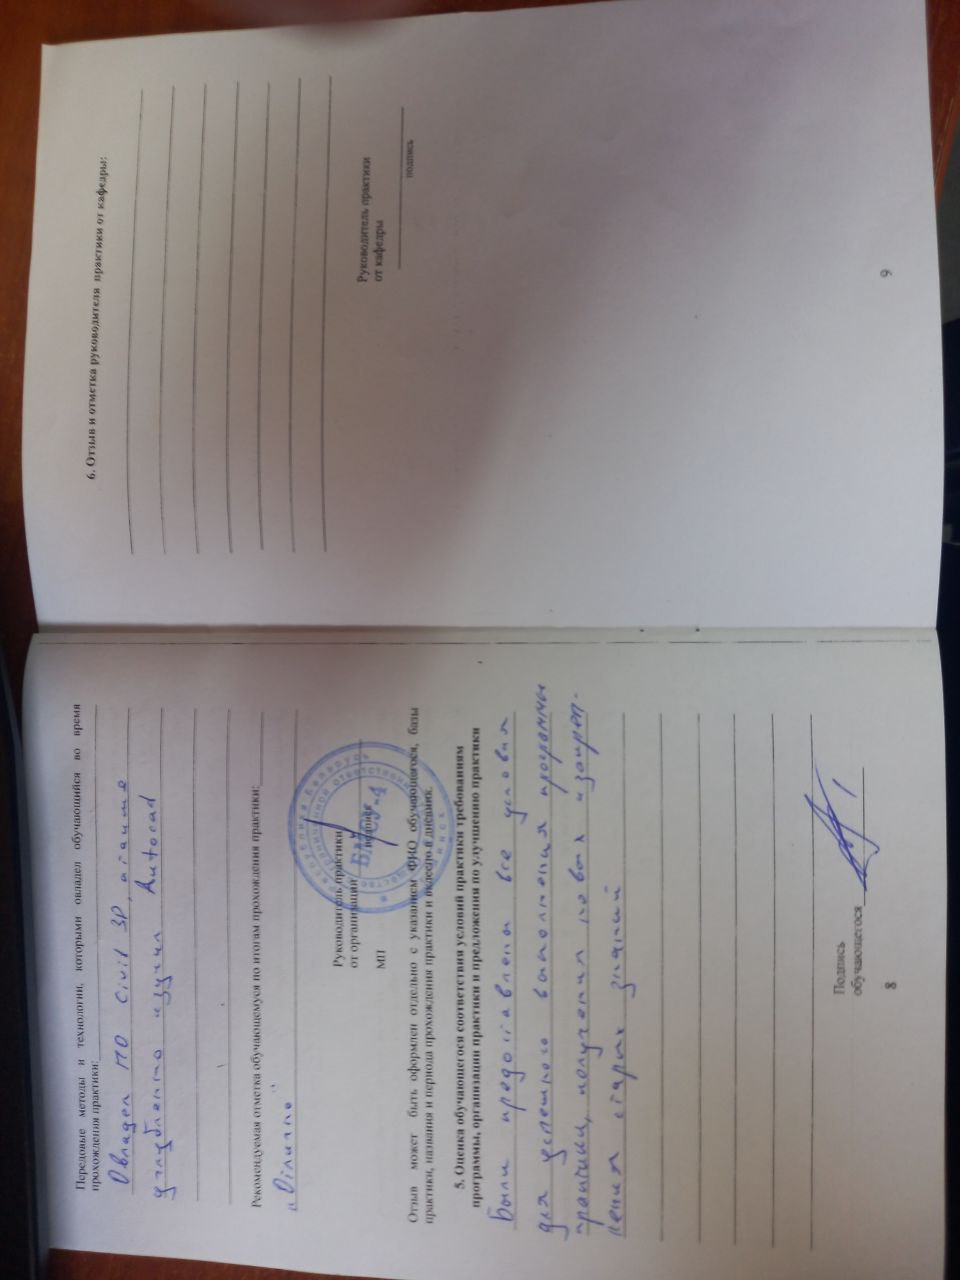 Передовые методы и технологии, которыми овладел обучающийся во время
прохождения практики:
Овладел ПО Civil 3D, а также
углубленно изучил Autocad
Рекомендуемая отметка обучающемуся по итогам прохождения практики:
"Отлично"
Руководитель практики
от организации
подпись
МП
Республика Беларусь
Общество с ограниченной ответственностью
Минск
Отзыв может быть оформлен отдельно с указанием ФИО обучающегося, базы
практики, названия и периода прохождения практики и вклеено в дневник.
5. Оценка обучающегося соответствия условий практики требованиям
программы, организации практики и предложения по улучшению практики
Были предоставлены все условия
для успешного выполнения программы
практики, получения новых и закреп-
ления старых знаний
Подпись
обучающегося
8
6. Отзыв и отметка руководителя практики от кафедры:
Руководитель практики
от кафедры
подпись
9